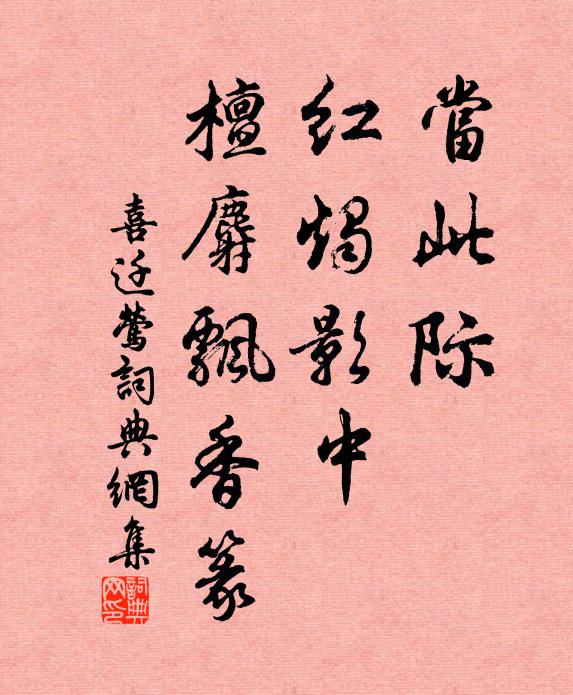 當此际
紅燭影中
檀麝飄香篆
喜迁鶯詞典網集
詞典网印